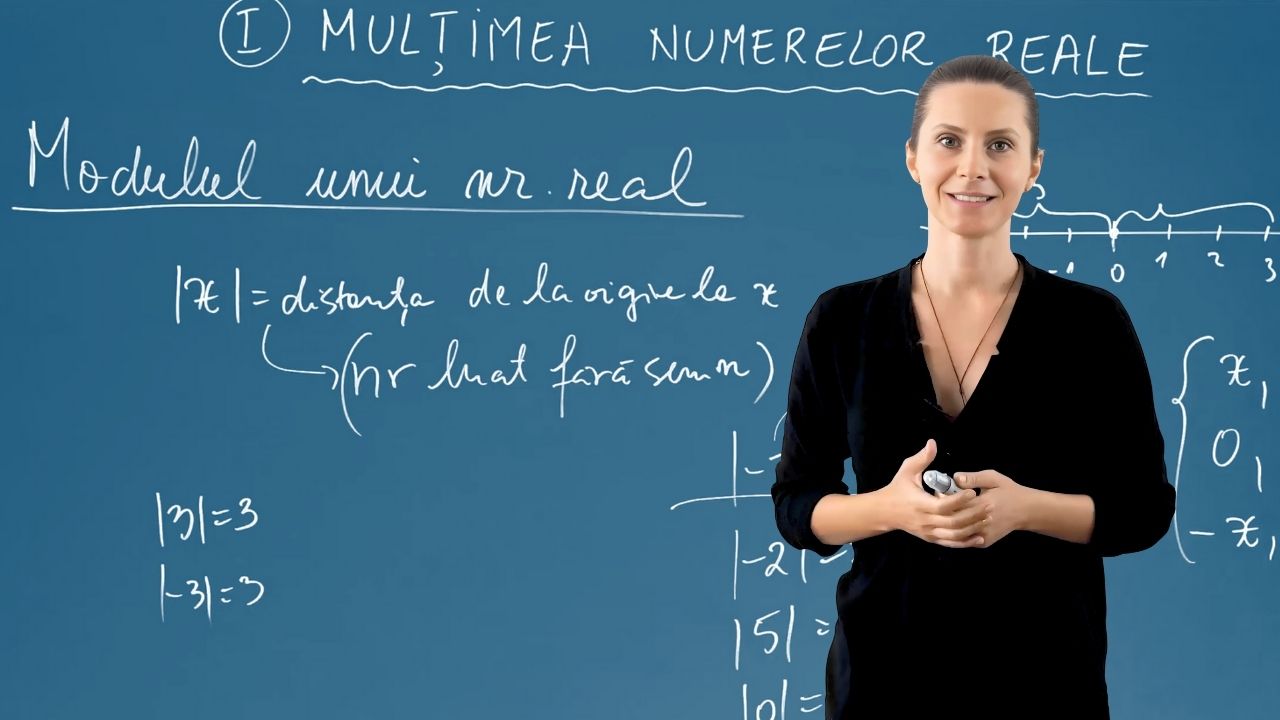 I MULȚIMEA NUMERELOR REALE
Modulul unui nr. real
3
-1 0 1 2 3
|x| = distanța de la origine la x
(nr luat fără semn)
x,
0,
-x,
|3|=3
|-3|=3
|-2|=
|5|=
|0|=